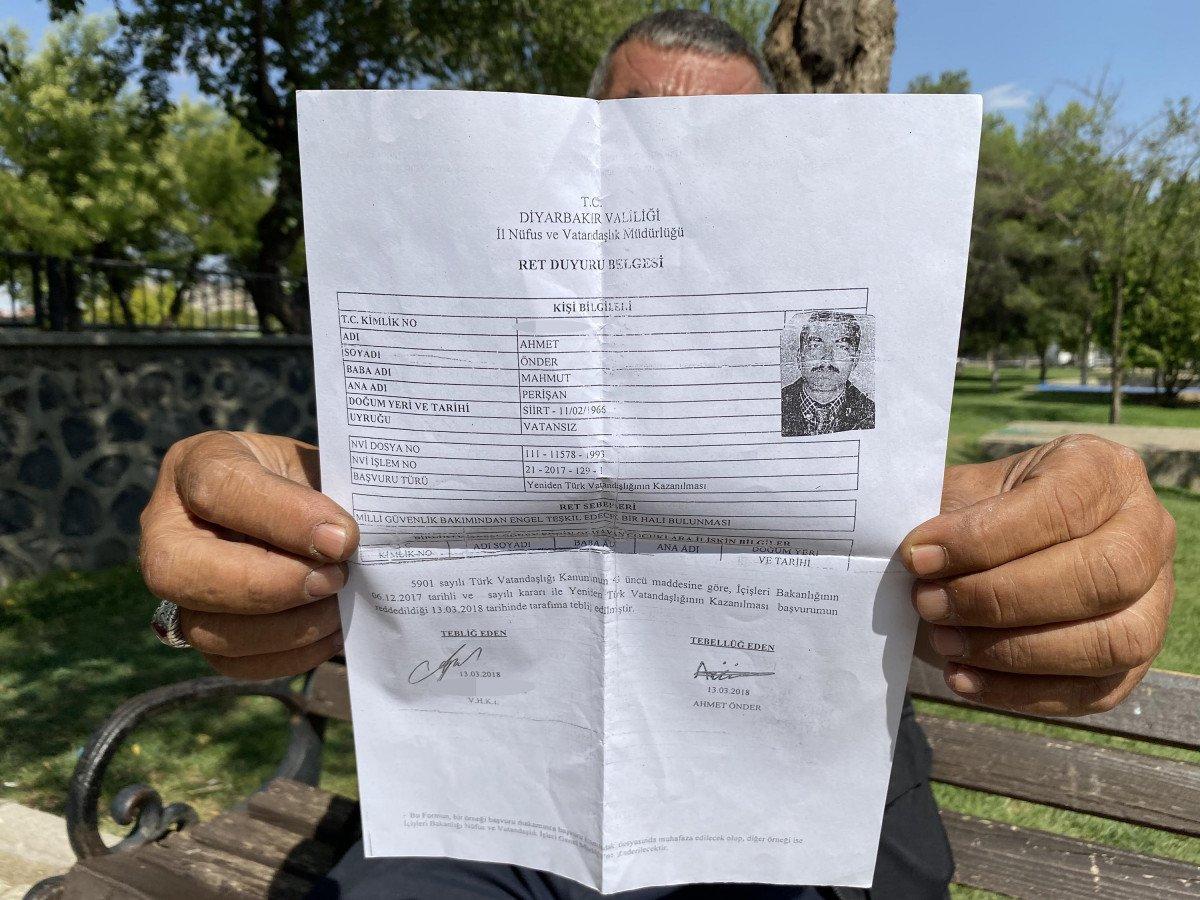 T.C.
DİYARBAKIR VALİLİĞİ
İl Nüfus ve Vatandaşlık Müdürlüğü
RET DUYURU BELGESİ
KİŞİ BİLGİLELİ
T.C. KİMLİK NO
ADI AHMET
SOYADI ÖNDER
BABA ADI MAHMUT
ANA ADI PERİŞAN
DOĞUM YERİ VE TARİHİ SİİRT - 11/02/1966
UYRUĞU VATANSIZ
NVİ DOSYA NO 111 - 11578 - 1993
NVİ İŞLEM NO 21 - 2017 - 129 - 1
BAŞVURU TÜRÜ Yeniden Türk Vatandışlığının Kazanılması
RET SEBEPLERİ
MİLLİ GÜVENLİK BAKIMINDAN ENGEL TEŞKİL EDECEK BİR HALİ BULUNMASI
ÇOCUKLARA İLİŞKİN BİLGİLER
KİMLİK NO ADI SOYADI BABA ADI ANA ADI DOĞUM YERİ
VE TARİHİ
5901 sayılı Türk Vatandaşlığı Kanununun 43 üncü maddesine göre, İçişleri Bakanlığının
06.12.2017 tarihli ve sayılı kararı ile Yeniden Türk Vatandaşlığının Kazanılması başvurumun
reddedildiği 13.03.2018 tarihinde tarafıma tebliğ edilmiştir.
TEBLİĞ EDEN TEBELLÜĞ EDEN
13.03.2018 13.03.2018
V.H.K.İ. AHMET ÖNDER
- Bu Formun, bir örneği başvuru makamınca başvuru dosyasında muhafaza edilecek olup, diğer örneği ise
İçişleri Bakanlığı Nüfus ve Vatandaşlık İşleri Genel